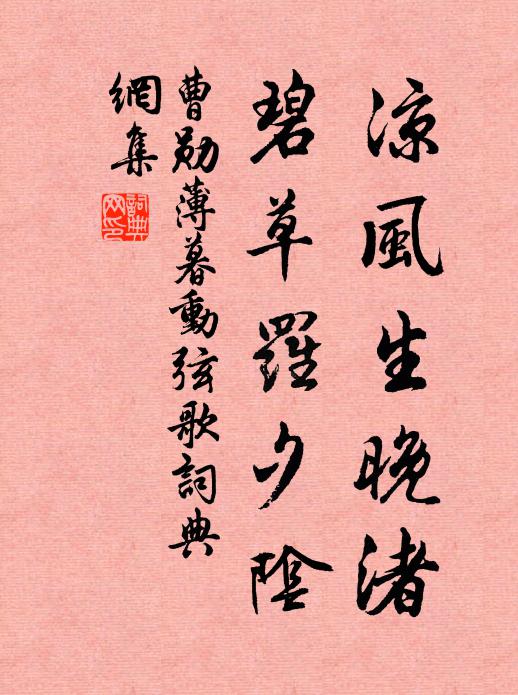 涼風生晚渚
碧草羅夕陰
曹勛薄暮動弦歌詞典
網集
詞典網印